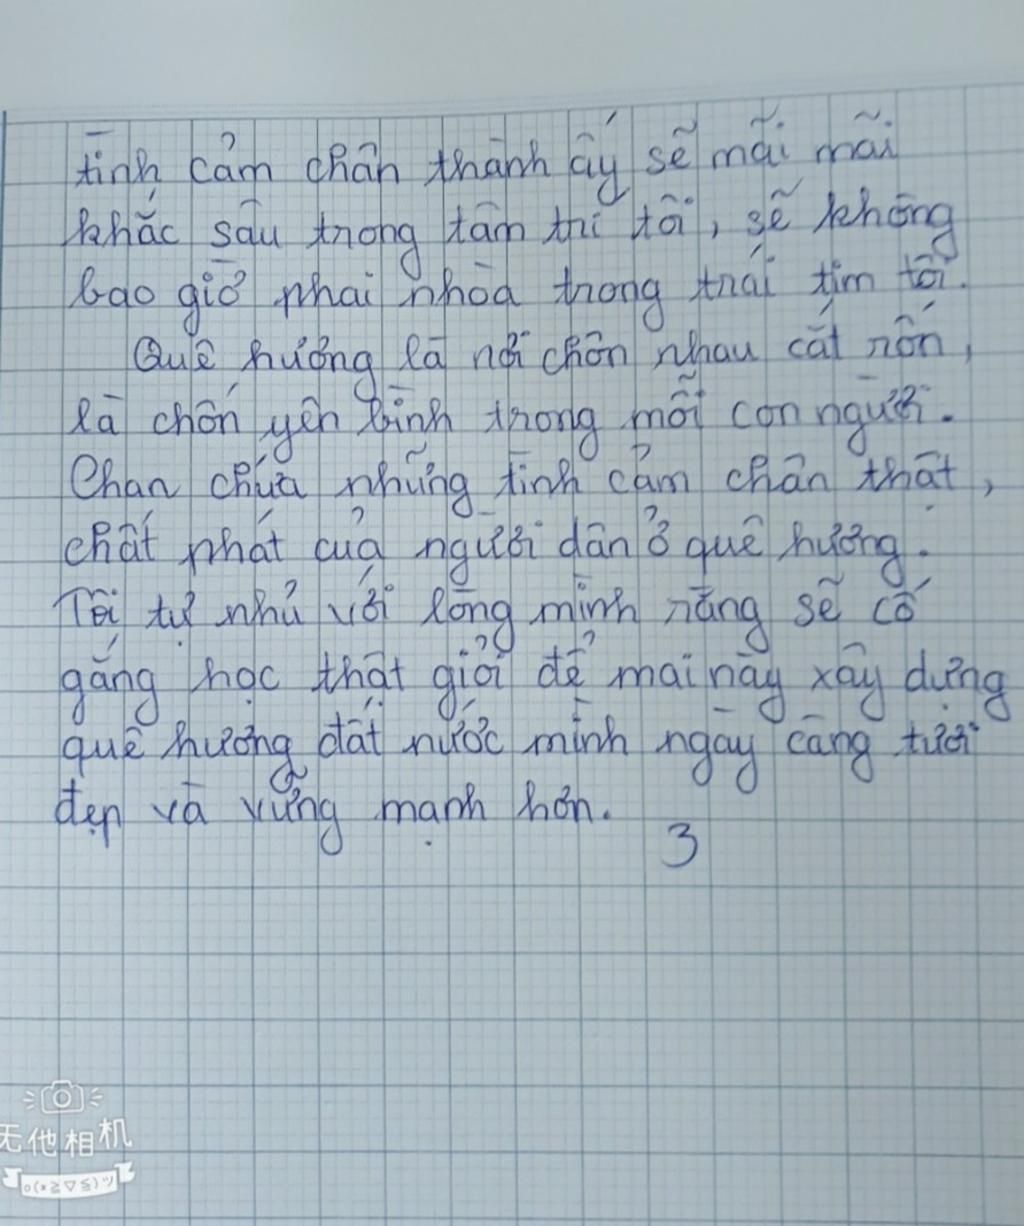 tình cảm chân thành ấy sẽ mãi mãi
khắc sâu trong tâm trí tôi, sẽ không
bao giờ phai nhòa trong trái tim tôi.
Quê hương là nơi chôn nhau cắt rốn,
là chốn yên bình trong mỗi con người.
Chan chứa những tình cảm chân thật,
chất phát của người dân ở quê hương.
Tôi tự nhủ với lòng mình rằng sẽ cố
gắng học thật giỏi để mai này xây dựng
quê hương đất nước mình ngày càng tươi
đẹp và vững mạnh hơn.
3
无他相机
o(*≧▽≦)ツ